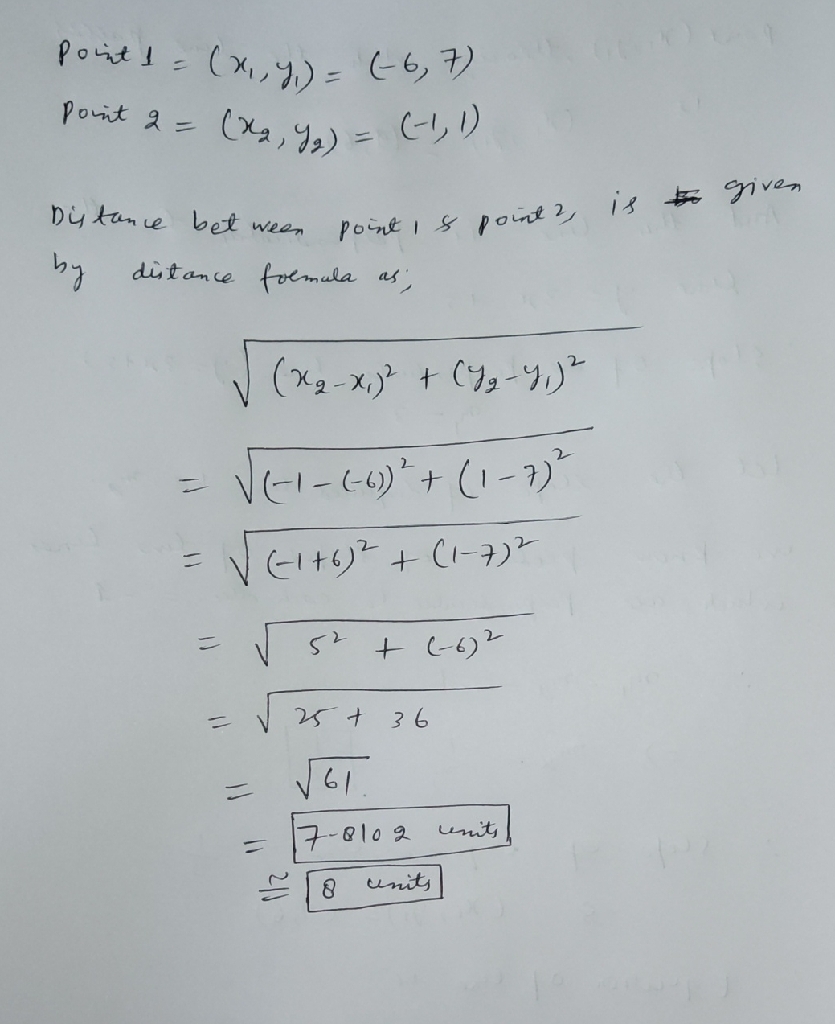 Point 1 = (x₁, y₁) = (-6, 7)
Point 2 = (x₂, y₂) = (-1, 1)
Distance between point 1 & point 2, is given
by distance formula as,
√((x₂-x₁)² + (y₂-y₁)²)
= √((-1-(-6))² + (1-7)²)
= √((-1+6)² + (1-7)²)
= √(5² + (-6)²)
= √(25 + 36)
= √61
= 7.8102 units
≅ 8 units